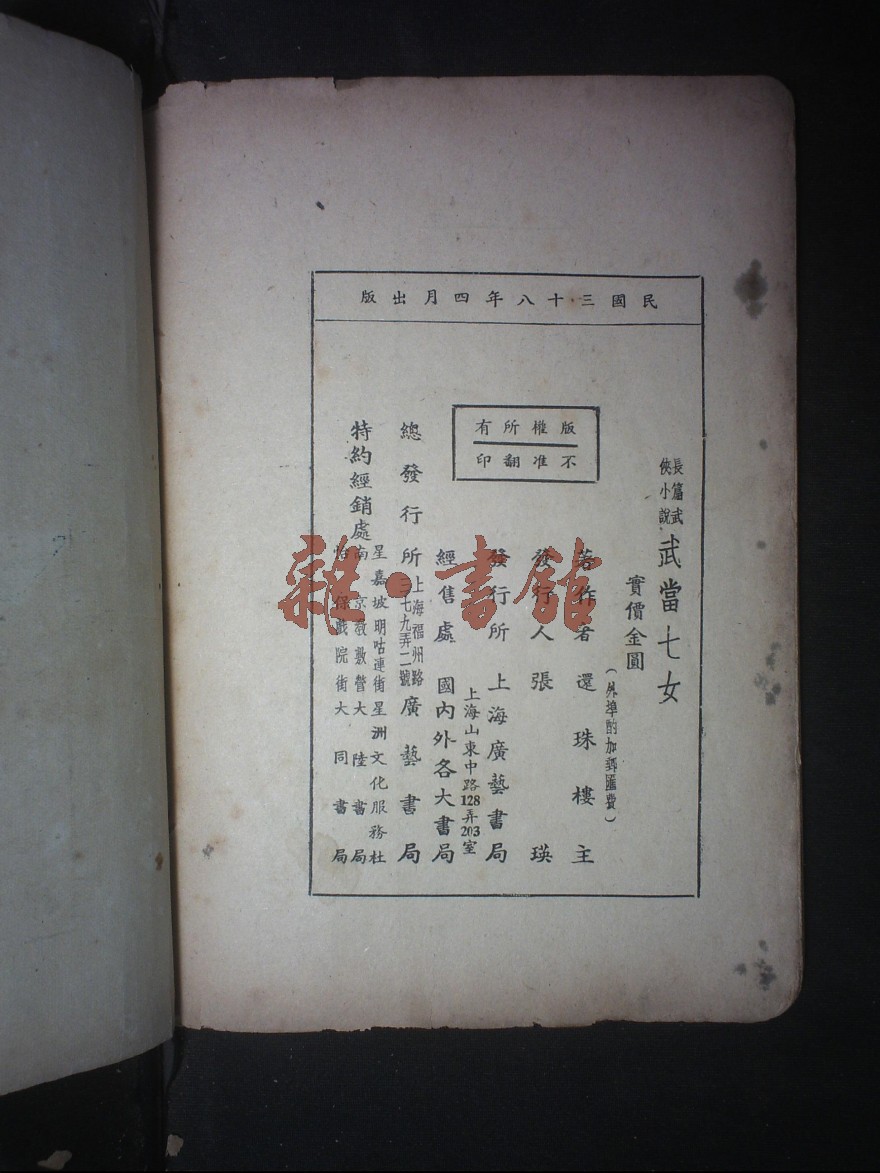 民國三十八年四月出版
長篇武
俠小說
武當七女
實價金圓
(外埠酌加郵匯費)
版權所有
不准翻印
著作者 還珠樓主
發行人 張瑛
發行所 上海廣藝書局
上海山東中路128弄203室
經售處 國內外各大書局
總發行所 上海福州路
三七九弄二號
廣藝書局
特約經銷處
星嘉坡明咕連街星洲文化服務社
南京教敷營大陸書局
怡保戲院街大同書局
雜·書館